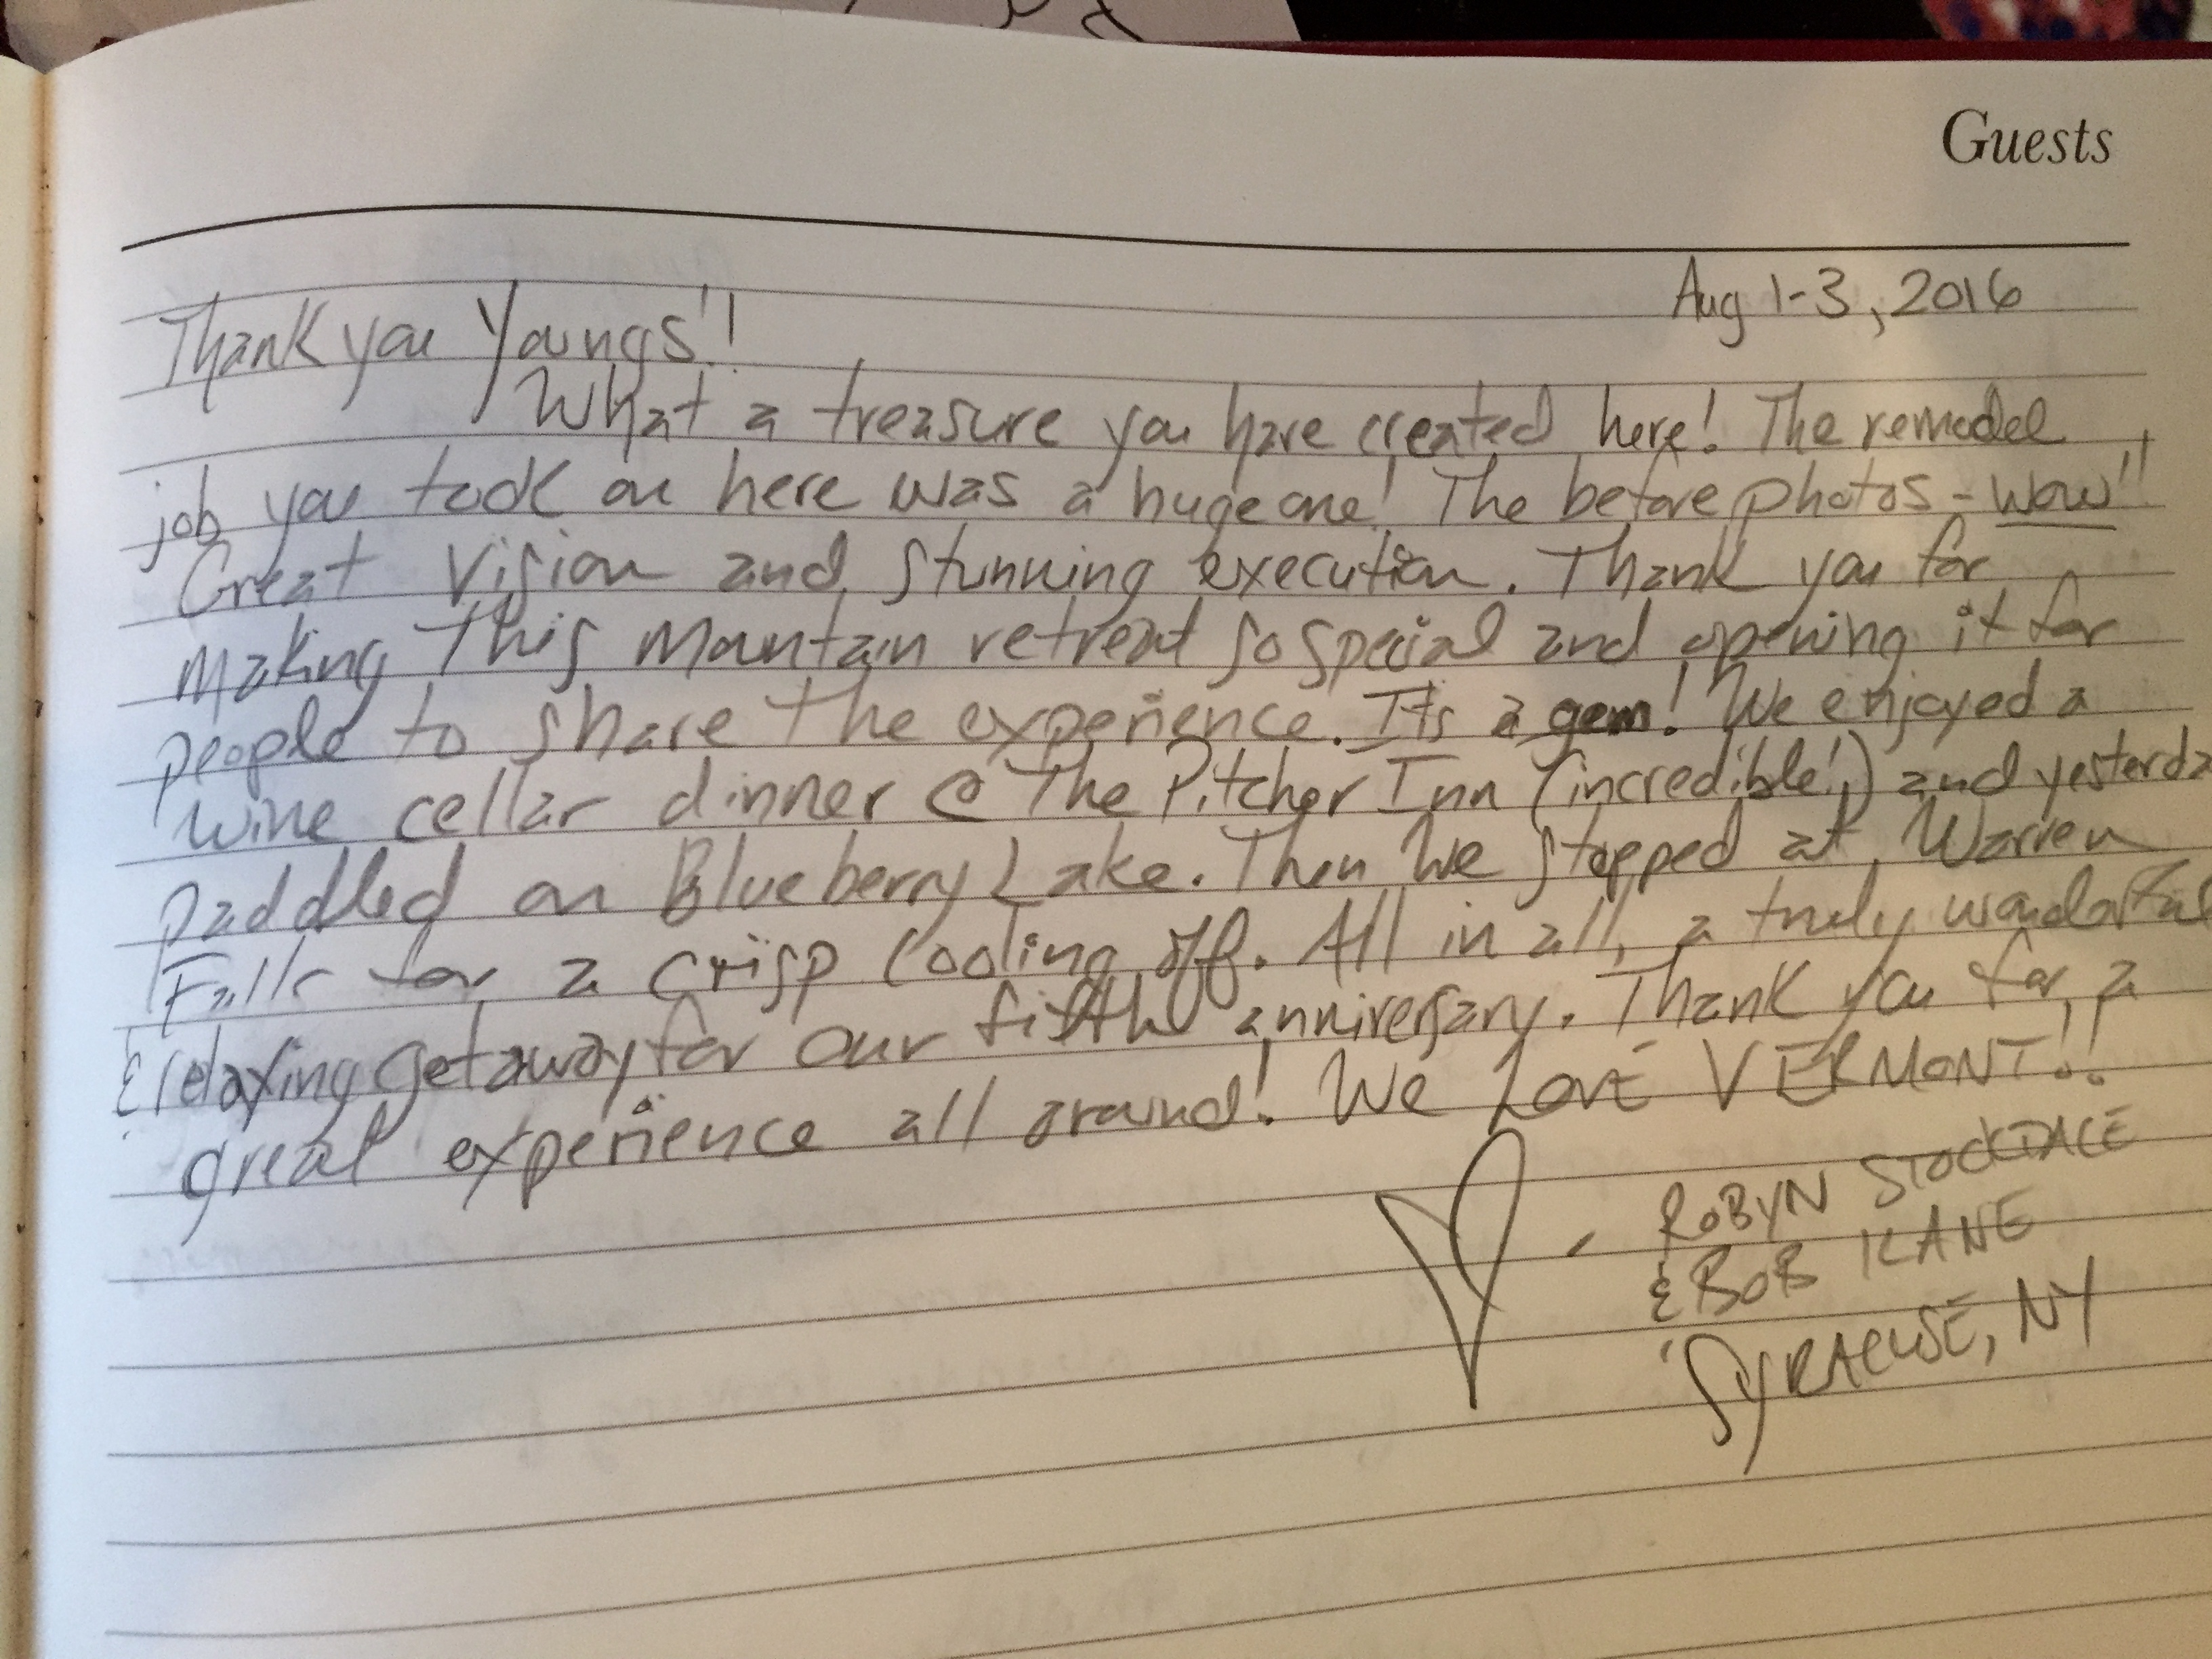 Guests
Aug 1-3, 2016
Thank you Youngs!!
What a treasure you have created here! The remodel
job you took on here was a huge one! The before photos - wow!!
Great Vision and stunning execution. Thank you for
making This mountain retreat so special and opening it for
people to share the experience. Its a gem! We enjoyed a
wine cellar dinner @ The Pitcher Inn (incredible!) and yesterda
paddled on Blueberry Lake. Then we stopped at Warren
Falls for a crisp cooling off. All in all, a truly wonderful
& relaxing getaway for our fifth anniversary. Thank you for a
great experience all around! We Love VERMONT!!
- ROBYN STOCKDALE
& BOB KANE
SYRACUSE, NY